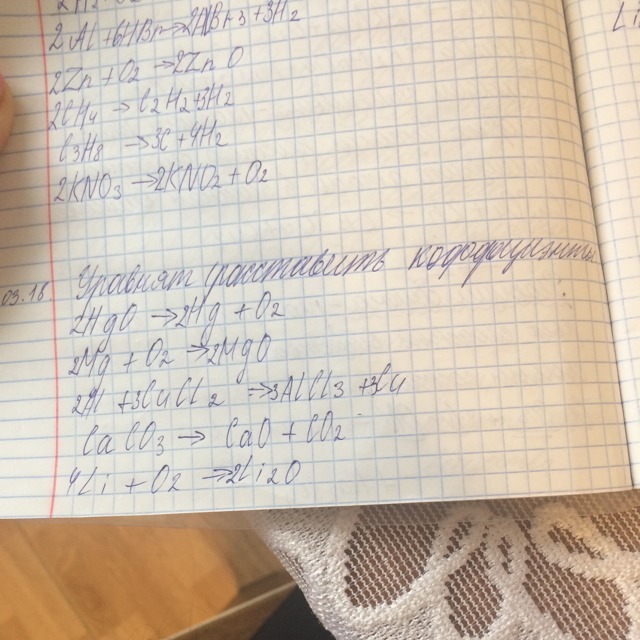 2Al + 6HBr → 2AlBr3 + 3H2
2Zn + O2 → 2ZnO
2CH4 → C2H2 + 3H2
C3H8 → 3C + 4H2
2KNO3 → 2KNO2 + O2
03.18. Уравнят расставить
2HgO → 2Hg + O2
2Mg + O2 → 2MgO
2Al + 3CuCl2 → 3AlCl3 + 3Cu
CaCO3 → CaO + CO2
4Li + O2 → 2Li2O